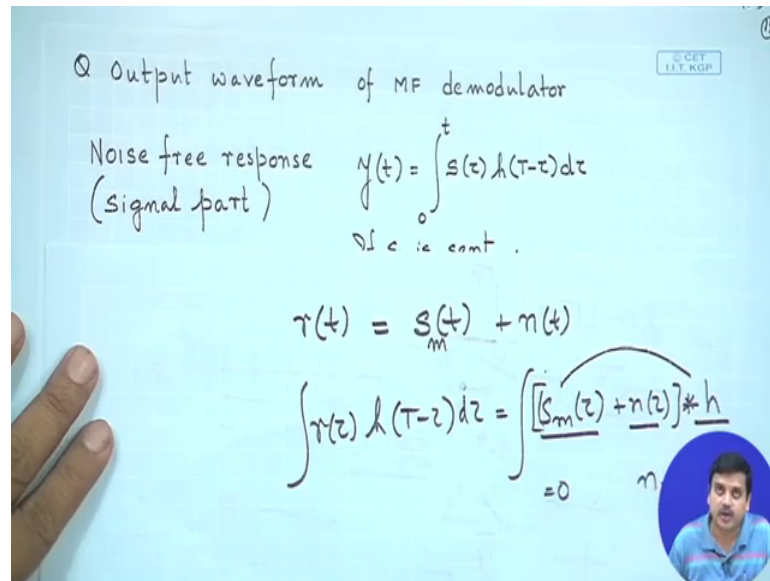 Q Output waveform of MF demodulator
© CET
I.I.T. KGP
Noise free response
(signal part)
y(t) = ∫₀ᵗ s(τ) h(T-τ)dτ
r(t) = s_m(t) + n(t)
∫ r(τ) h(T-τ)dτ = ∫ [s_m(τ) + n(τ)] * h
=0 n